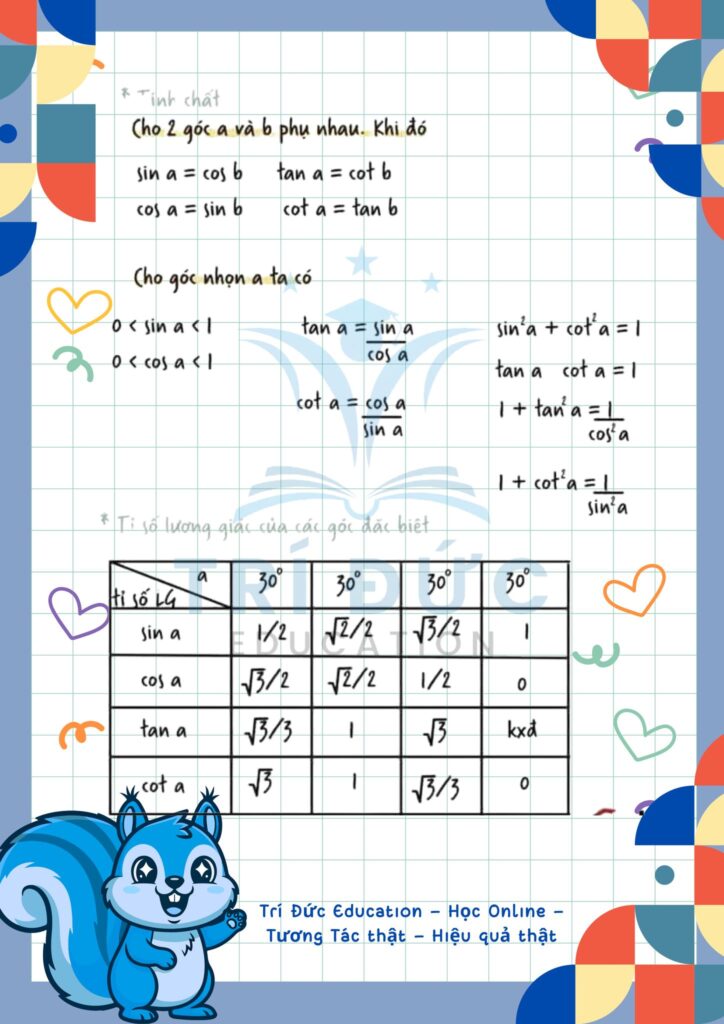 * Tính chất
Cho 2 góc a và b phụ nhau. Khi đó
sin a = cos b tan a = cot b
cos a = sin b cot a = tan b
Cho góc nhọn a ta có
0 < sin a < 1
0 < cos a < 1
tan a = sin a
cos a
cot a = cos a
sin a
sin²a + cot²a = 1
tan a cot a = 1
1 + tan²a = 1
cos²a
1 + cot²a = 1
sin²a
* Tỉ số lượng giác của các góc đặc biệt
a 30° 30° 30° 30°
tỉ số LG
sin a 1/2 √2/2 √3/2 1
cos a √3/2 √2/2 1/2 0
tan a √3/3 1 √3 kxđ
cot a √3 1 √3/3 0
TRÍ ĐỨC
EDUCATION
Trí Đức Education – Học Online –
Tương Tác thật – Hiệu quả thật